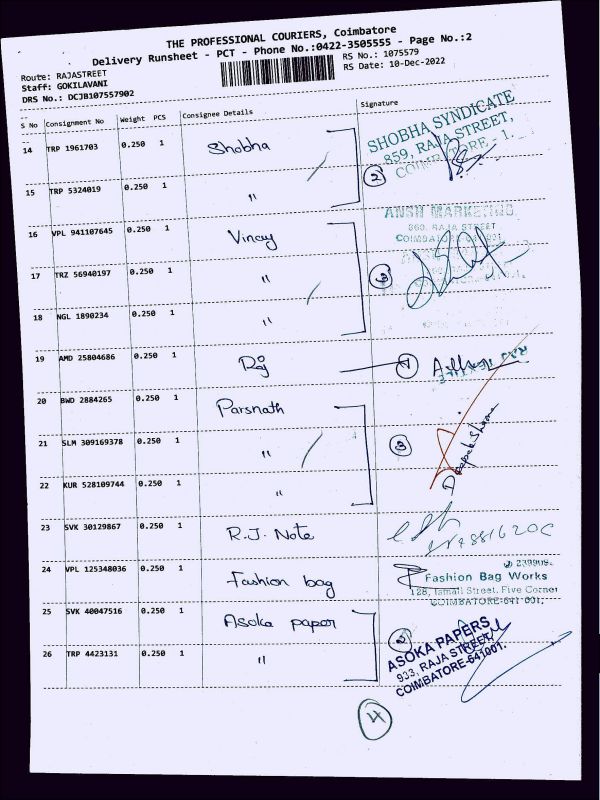 THE PROFESSIONAL COURIERS, Coimbatore
Delivery Runsheet - PCT - Phone No.:0422-3505555 - Page No.:2
Route: RAJASTREET
RS No.: 1075579
Staff: GOKILAVANI
RS Date: 10-Dec-2022
DRS No.: DCJB107557902
S No Consignment No Weight PCS Consignee Details Signature
14 TRP 1961703 0.250 1 Shobha
SHOBHA SYNDICATE
859, RAJA STREET,
2
15 TRP 5324019 0.250 1 "
16 VPL 941107645 0.250 1 Vinay
ANSH MARKETING
860, RAJA STREET
17 TRZ 56940197 0.250 1 " 3
18 NGL 1890234 0.250 1 "
19 AMD 25804686 0.250 1 Raj 1
20 BWD 2884265 0.250 1 Parsnath
21 SLM 309169378 0.250 1 " 3
22 KUR 528109744 0.250 1 "
23 SVK 30129867 0.250 1 R.J. Note
24 VPL 125348036 0.250 1 Fashion bag
Fashion Bag Works
128, Ismail Street, Five Corner
COIMBATORE-641 001.
25 SVK 40047516 0.250 1 Asoka paper 2
ASOKA PAPERS
933, RAJA STREET,
COIMBATORE-641001.
26 TRP 4423131 0.250 1 "
4